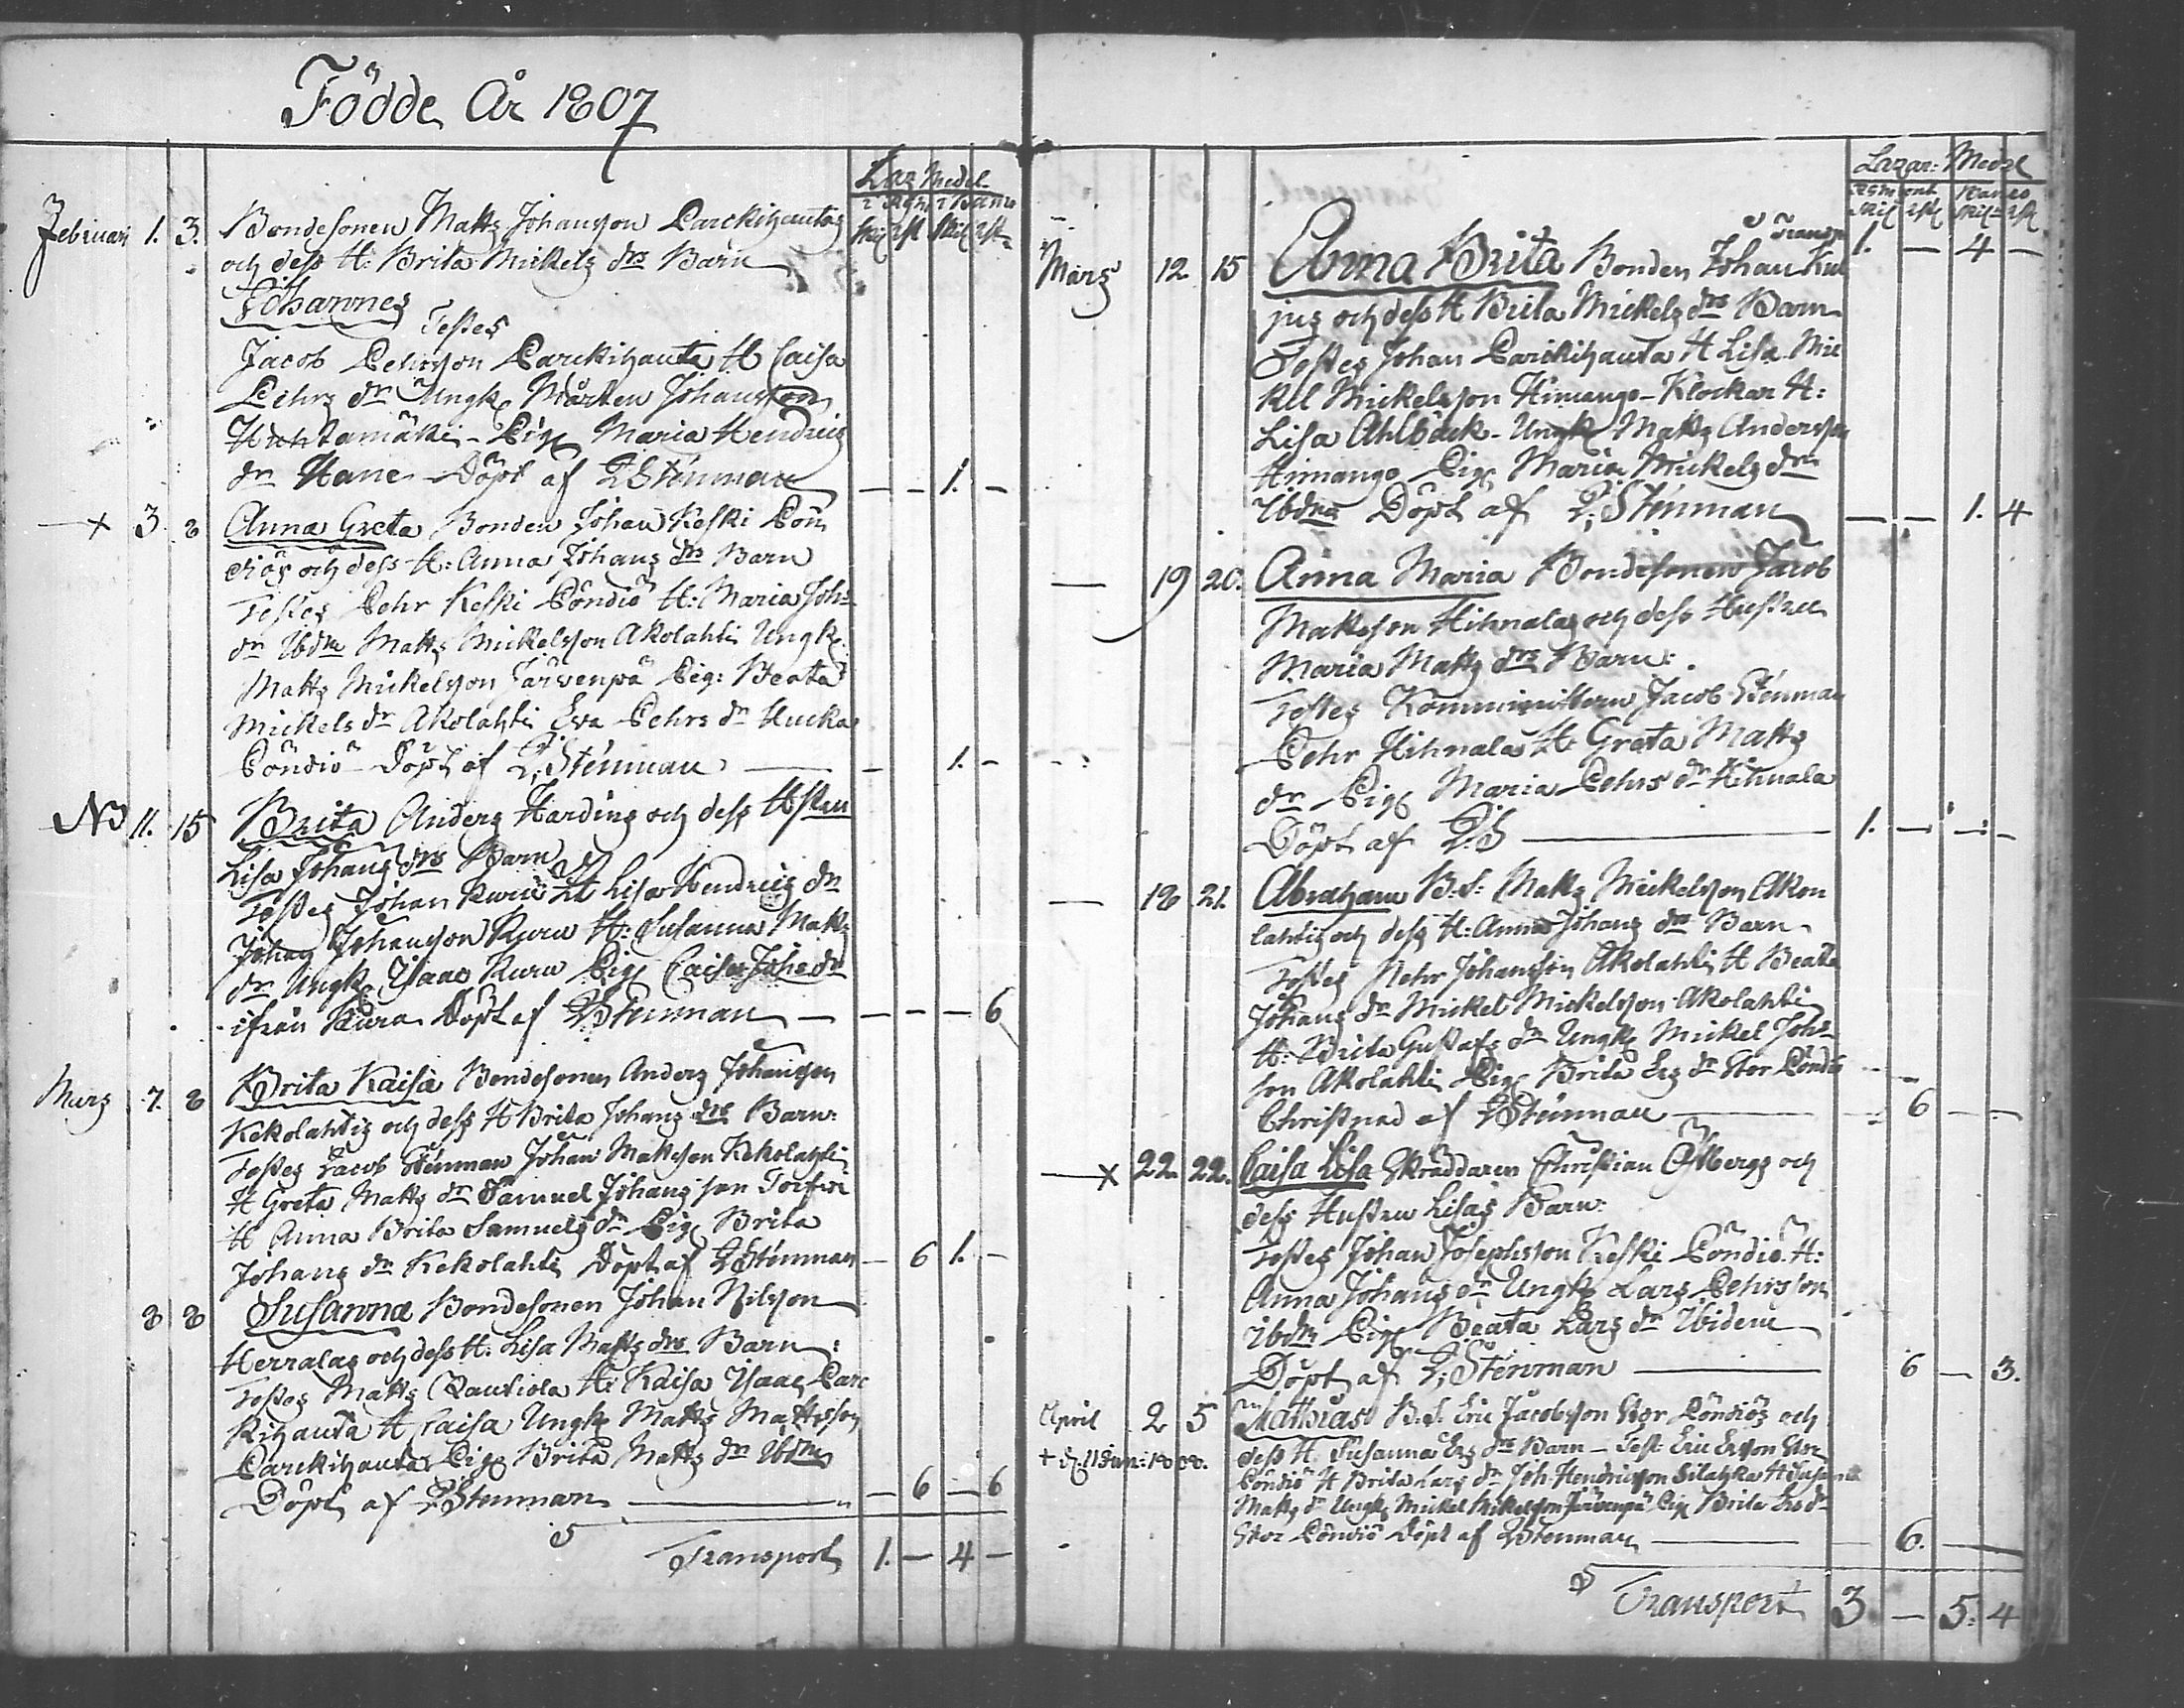 Födde År 1807
Laz Medel
i Rgm i Banco
Skil rst Skil rst
Februari 1. 3. Bondesonen Matts Johansson Parckihautas
och dess H: Brita Mickels drs Barn
Johannes
Testes
Jacob Pehrsson Parckihauta H Caisa
Pehrs dr Ungk Mårten Johansson
Huhtamäki - Pig Maria Hendrics
dr Hane - Döpt af J Stenman — — 1. —
+ 3. 8 Anna Greta Bonden Johan Keski Pön
diös och dess H: Anna Johans drs Barn
Testes Pehr Keski Pöndiö H: Maria Joh:
dr Ibdm Matts Mickelsson Akolahti Ungk.
Matts Mickelsson Järvenpä Pig: Beata
Mickels dr Akolahti Eva Pehrs dr Hucka
Pöndiö - Döpt af J: Stenman — — 1. -
NB 11. 15 Brita Anders Hardins och dess Hstru
Lisa Johans drs Barn
Testes Johan Kuru H Lisa Hendrics dr
Johan Johansson Kuru H: Susanna Matts
dr Ungk Isaac Kuru Pig Caisa Johs dr
ifrån Kuru Döpt af J Stenman — — — — 6
Mars 7. 8 Brita Kaisa Bondesonen Anders Johansson
Kekolahtis och dess H Brita Johans drs Barn:
Testes Jacob Stenman Johan Matsson Kekolahti
H Greta Matts dr Samuel Johansson
H Anna Brita Samuels dr Pig Brita
Johans dr Kekolahti Döpt af J Stenman — 6 1. -
8 8 Susanna Bondesonen Johan Nilsson
Herralas och dess H. Lisa Matts drs Barn:
Testes Matts Rautiola H: Kaisa Isaac Parc
kihauta H Caisa Ungk Matts Mattsson
Parckihauta Pig Brita Matts dr Ibdm
Döpt af J Stenman — 6 — 6
Transport 1. — 4 —
Lazar: Medel
Rgm Banco
Skil rst Skil rst
Transp 1. — 4 —
Mars 12 15 Anna Brita Bonden Johan Kul
jus och dess H Brita Mickels drs Barn
Testes Johan Parckihauta H Lisa Mic
kel Mickelsson Himango - Klockar H:
Lisa Ahlbäck - Ungk Matts Andersson
Himango Pig Maria Mickels dr
Ibdm Döpt af J; Stenman — — 1. 4
— 19 20. Anna Maria Bondesonen Jacob
Mattsson Hihnalas och dess Hustru
Maria Matts drs Barn:
Testes Komministern Jacob Stenman
Pehr Hihnala H: Greta Matts
dr Pig Maria Pehrs dr Hihnala
Döpt af J.S — 1. — — —
— 18 21. Abraham B.S: Matts Mickelsson Ako
lahtis och dess H: Anna Johans drs Barn
Testes Pehr Johansson Akolahti H Beata
Johans dr Mickel Mickelsson Akolahti
H: Brita Gustafs dr Ungk Mickel Johs-
son Akolahti Pig Brita Ers dr Stor Pöndiö
Christnad af J Stenman — 6 — —
—x 22. 22. Caisa Lisa Skräddaren Christian Östbergs och
dess Hustru Lisas Barn:
Testes Johan Josephsson Keski Pöndiö. H:
Anna Johans dr Ungk Lars Pehrsson
ibdm Pig Beata Lars dr Ibidem
Döpt af J; Stenman — 6 — 3.
April 2 5 Mathias B.S. Eric Jacobsson Stor Pöndiös och
+ d. 11 Jun: 1808.
dess H. Susanna Ers drs Barn - Test: Eric Ersson Stor
Pöndiö H Brita Lars dr Joh. Hendricsson Silahka H Susanna
Matts dr Ungk Mickel Mickelsson Järvenpä Pig Brita Ers dr
Stor Pöndiö Döpt af J Stenman — 6. —
Transport 3 — 5: 4